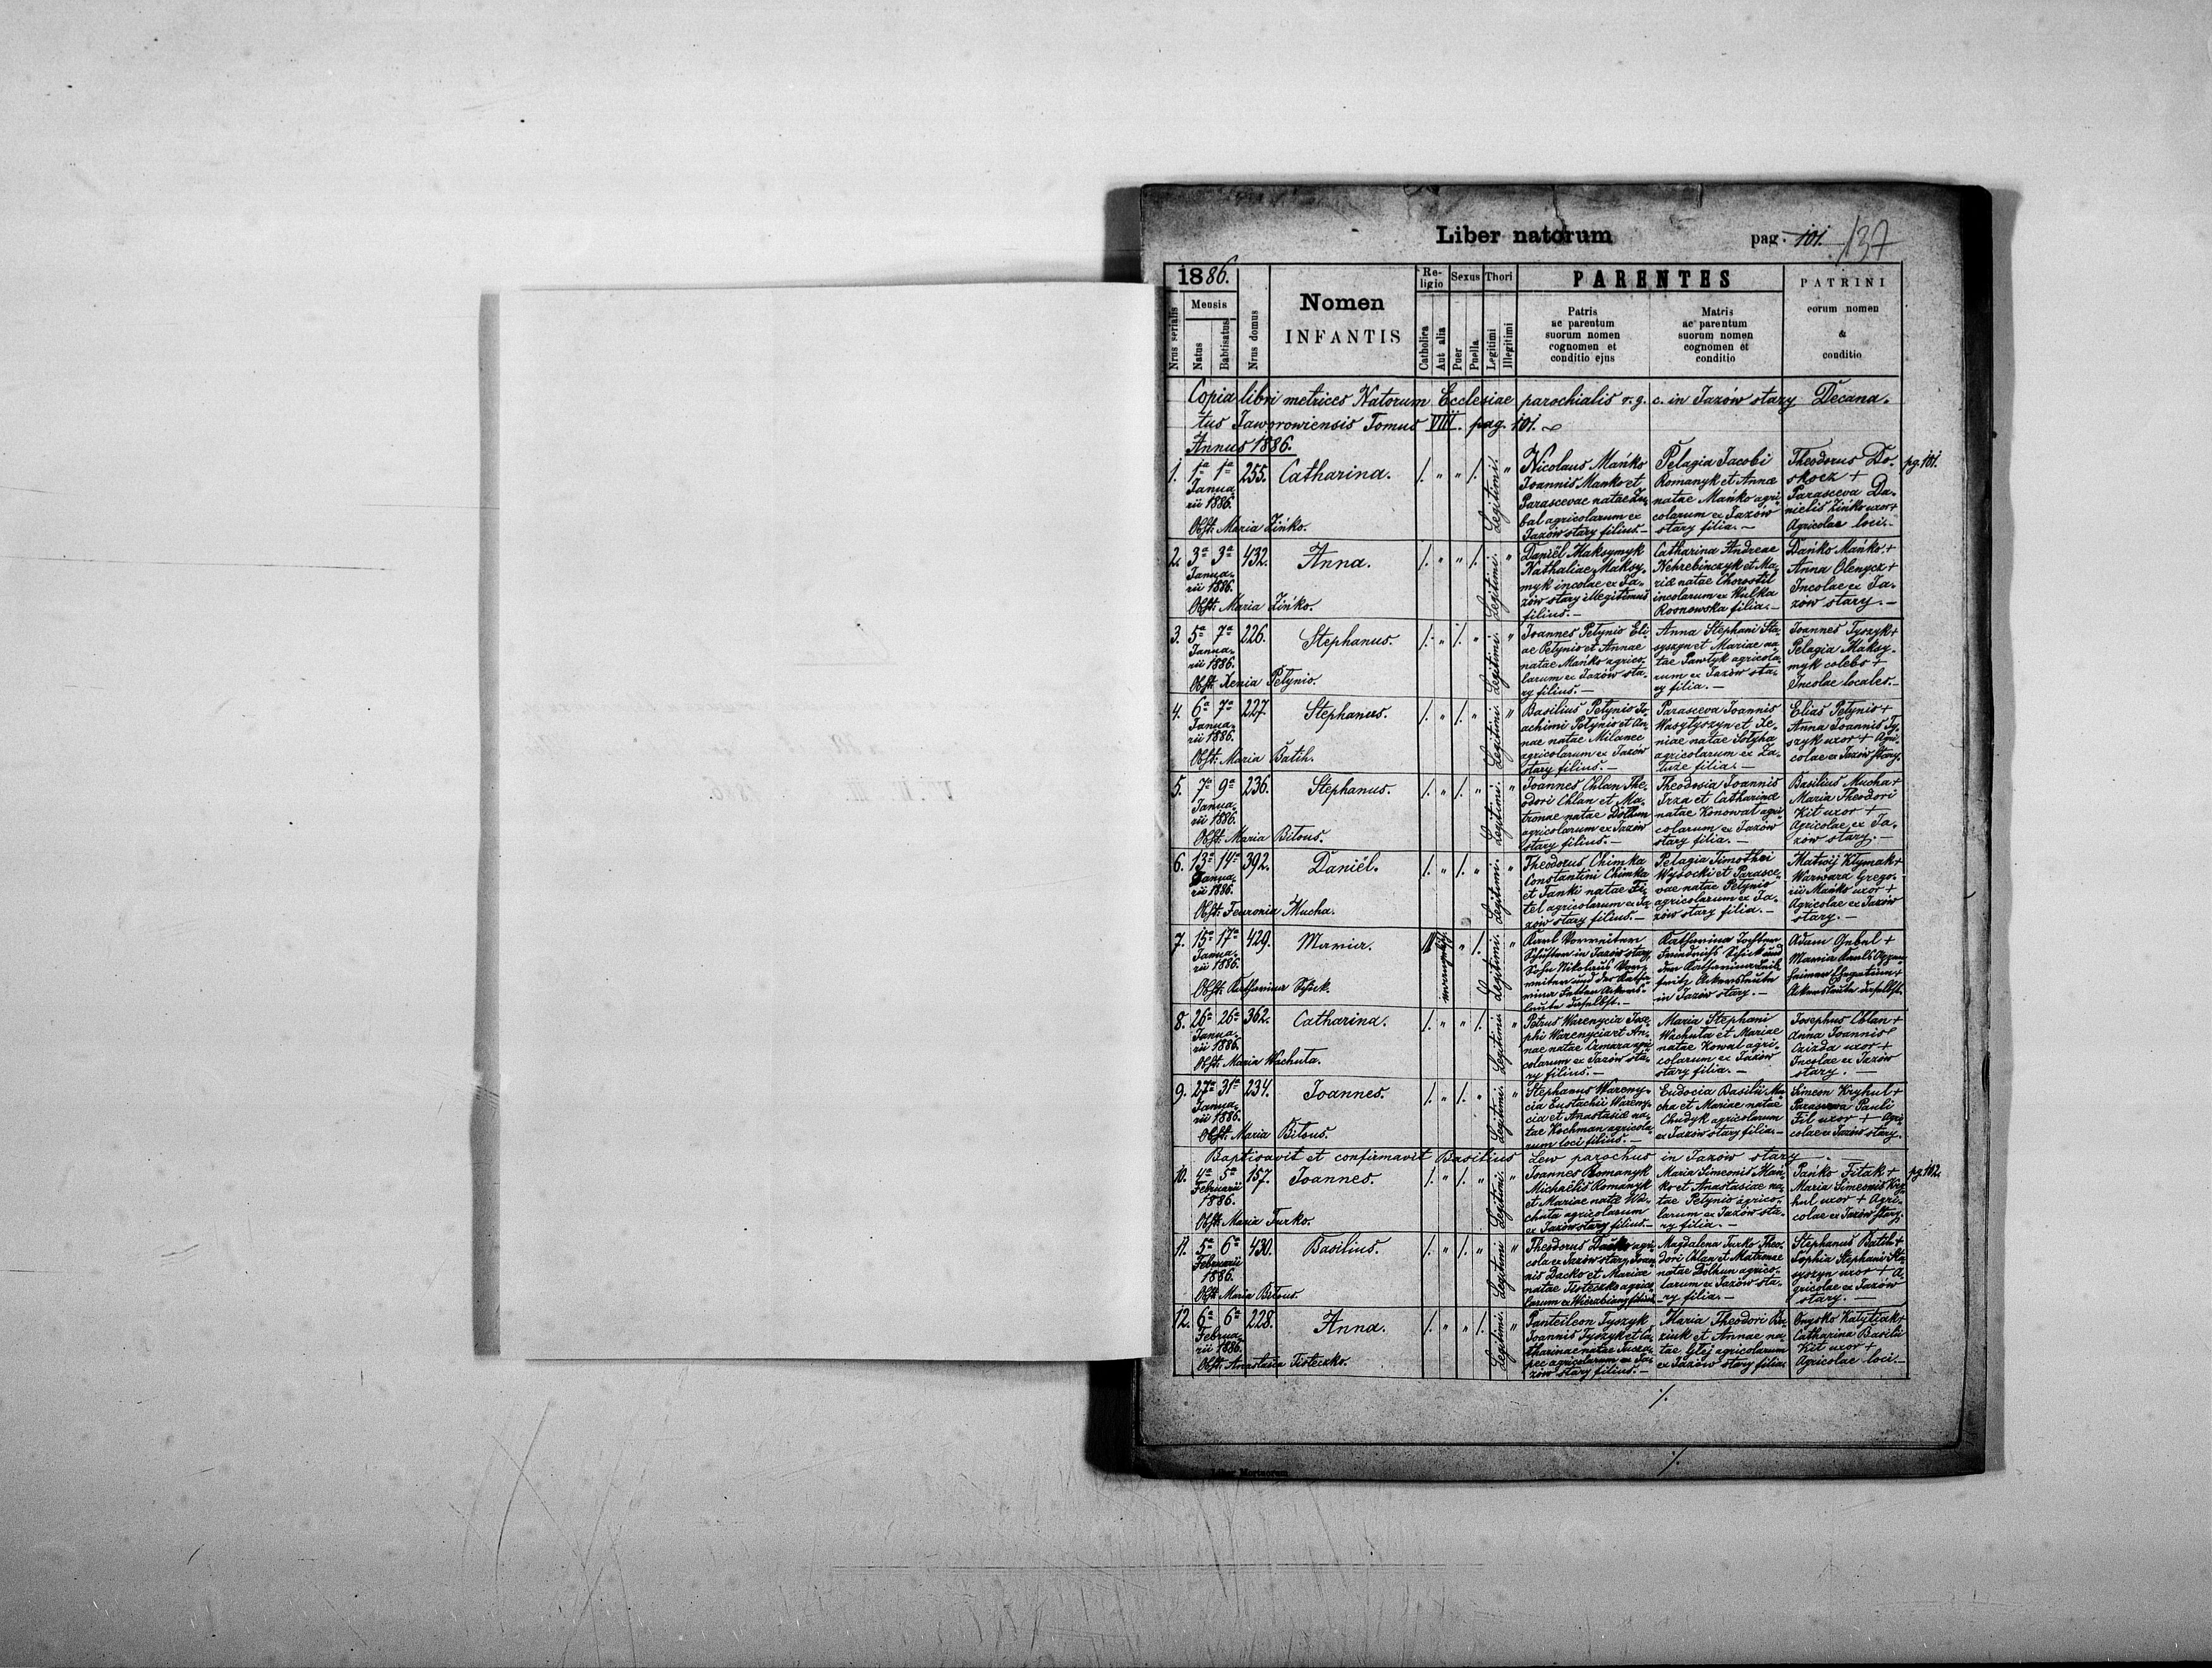 Liber natorum
pag. 101. 137
1886.
Nrus serialis
Mensis
Natus
Babtisatus
Nrus domus
Nomen
INFANTIS
Religio
Catholica
Aut alia
Sexus
Puer
Puella
Thori
Legitimi
Illegitimi
PARENTES
Patris
ac parentum
suorum nomen
cognomen et
conditio ejus
Matris
ac parentum
suorum nomen
cognomen et
conditio
PATRINI
eorum nomen
&
conditio
Copia libri metrices Natorum Ecclesiae parochialis r. g. c. in Jazów stary Decana-
tus Jaworowiensis Tomus VIII. pag. 101.
Annus 1886.
1. 1a 1a 255. Catharina.
Janua-
rii 1886.
Obst: Maria Zińko.
Legitimi.
Nicolaus Mańko
Joannis Mańko et
Parascevae natae
bal agricolarum ex
Jazów stary filius.-
Pelagia Jacobi
Romanyk et Annae
natae Mańko agri-
colarum ex Jazów
stary filia.-
Theodorus Do-
skocz +
Parasceva Da-
nielis Zińko uxor+
Agricolae loci.-
pg. 101.
2. 3a 3a 432. Anna.
Janua-
rii 1886.
Obst: Maria Zińko.
Legitimi.
Daniël Maksymyk
Nathaliae Maksy-
myk incolae ex Ja-
zów stary illegitimus
filius.-
Catharina Andreae
Nehrebinczyk et Ma-
riae natae Chorostil
incolarum ex Wulka
Rosnowska filia.-
Dańko Mańko.+
Anna Olenycz+
Incolae ex Ja-
zów stary.-
3. 5a 7a 226. Stephanus.
Janua-
rii 1886.
Obst: Xenia Petynio.
Legitimi.
Joannes Petynio Eli-
ae Petynio et Annae
natae Mańko agrico-
larum ex Jazów sta-
ry filius.-
Anna Stephani Sta-
syszyn et Mariae na-
tae Pawłyk agricola-
rum ex Jazów sta-
ry filia.-
Joannes Tyszyk+
Pelagia Maksy-
myk colebs +
Incolae locales.-
4. 6a 7a 227. Stephanus.
Janua-
rii 1886.
Obst: Maria Batih.
Legitimi.
Basilius Petynio Jo-
achimi Petynio et An-
nae natae Milanec
agricolarum ex Jazów
stary filius.-
Parasceva Joannis
Wasylyszyn et Xe-
niae natae Sołyha
agricolarum ex Za-
łuże filia.-
Elias Petynio+
Anna Joannis Ty-
szyk uxor+ Agri-
colae ex Jazów stary.
5. 7a 9a 236. Stephanus.
Janua-
rii 1886.
Obst: Maria Bitous.
Legitimi.
Joannes Chlan The-
odori Chlan et Ma-
tronae natae Dolhun
agricolarum ex Jazów
stary filius.-
Theodosia Joannis
Irza et Catharinae
natae Konowal agri-
colarum ex Jazów
stary filia.-
Basilius Mucha+
Maria Theodori
Kit uxor +
Agricolae ex Ja-
zów stary.-
6. 13a 14a 392. Daniël.
Janua-
rii 1886.
Obst: Feuronia Mucha.
Legitimi.
Theodorus Chimka
Constantini Chimka
et Tanki natae Fi-
tel agricolarum ex Ja-
zów stary filius.-
Pelagia Timothei
Wysocki et Parasce-
vae natae Petynio
agricolarum ex Ja-
zów stary filia.-
Matwij Kłymak+
Warwara Grego-
rii Mańko uxor +
Agricolae ex Jazów
stary.-
7. 15a 17a 429. Maria.
Janua-
rii 1886.
Obst: Katharina Schick.
Legitimi.
in Jazów stary
Sohn Nikolaus
und der Katha-
rina
daselbst.-
Katharina Tochter
Friedrichs Schick und
der Katharina
Ackersleute
in Jazów stary.-
Adam Gebel +
Maria Karls
Ackersleute daselbst.
8. 26a 26a 362. Catharina.
Janua-
rii 1886.
Obst: Maria Wachuta.
Legitimi.
Petrus Warenycia Jose-
phi Warenycia et An-
nae natae Czmara agri-
colarum ex Jazów sta-
ry filius.-
Maria Stephani
Wachuta et Mariae
natae Kowal agri-
colarum ex Jazów
stary filia.-
Josephus Chlan+
Anna Joannis
Czizda uxor+
Incolae ex Jazów
stary.-
9. 27a 31a 234. Joannes.
Janua-
rii 1886.
Obst: Maria Bitous.
Legitimi.
Stephanus Wareny-
cia Eustachii Wareny-
cia et Anastasiae na-
tae Kochman agricola-
rum loci filius.-
Eudocia Basilii Mu-
cha et Mariae natae
Chudyk agricolarum
ex Jazów stary filia.-
Simeon Kryhul+
Parasceva Pauli
Fil uxor + Agri-
colae ex Jazów stary.
Baptisavit et confirmavit Basilius Lew parochus in Jazów stary
10. 4a 5a 157. Joannes.
Februarii
1886.
Obst: Maria Turko.
Legitimi.
Joannes Romanyk
Michaëlis Romanyk
et Mariae natae Wa-
chuta agricolarum
ex Jazów stary filius.-
Maria Simeonis Mań-
ko et Anastasiae na-
tae Petynio agrico-
larum ex Jazów sta-
ry filia.-
Pańko Fitak+
Maria Simeonis Kry-
hul uxor + Agri-
colae ex Jazów stary.
pg. 102.
11. 5a 6a 430. Basilius.
Februarii
1886.
Obst: Maria Bitous.
Legitimi
Theodorus Dacko agri-
cola ex Jazów stary, Joan-
nis Dacko et Mariae
natae Tisteczko agrico-
larum ex Wierzbiany filius.-
Magdalena Turko Theo-
dori Chlan et Matronae
natae Dolhun agrico-
larum ex Jazów sta-
ry filia.-
Stephanus Batih+
Sophia Stephani Sta-
syszyn uxor + A-
gricolae ex Jazów
stary.-
12. 6a 6a 228. Anna.
Februa-
rii 1886.
Obst: Anastasia Tisteczko.
Legitimi.
Panteileon Tyszyk
Joannis Tyszyk et Ca-
tharinae natae Tucza-
pec agricolarum ex Ja-
zów stary filius.-
Maria Theodori
et Annae na-
tae Glej agricolarum
ex Jazów stary filia.
Onysko Katytiak+
Catharina Basilii
Kit uxor +
Agricolae loci.-
Liber Mortuorum